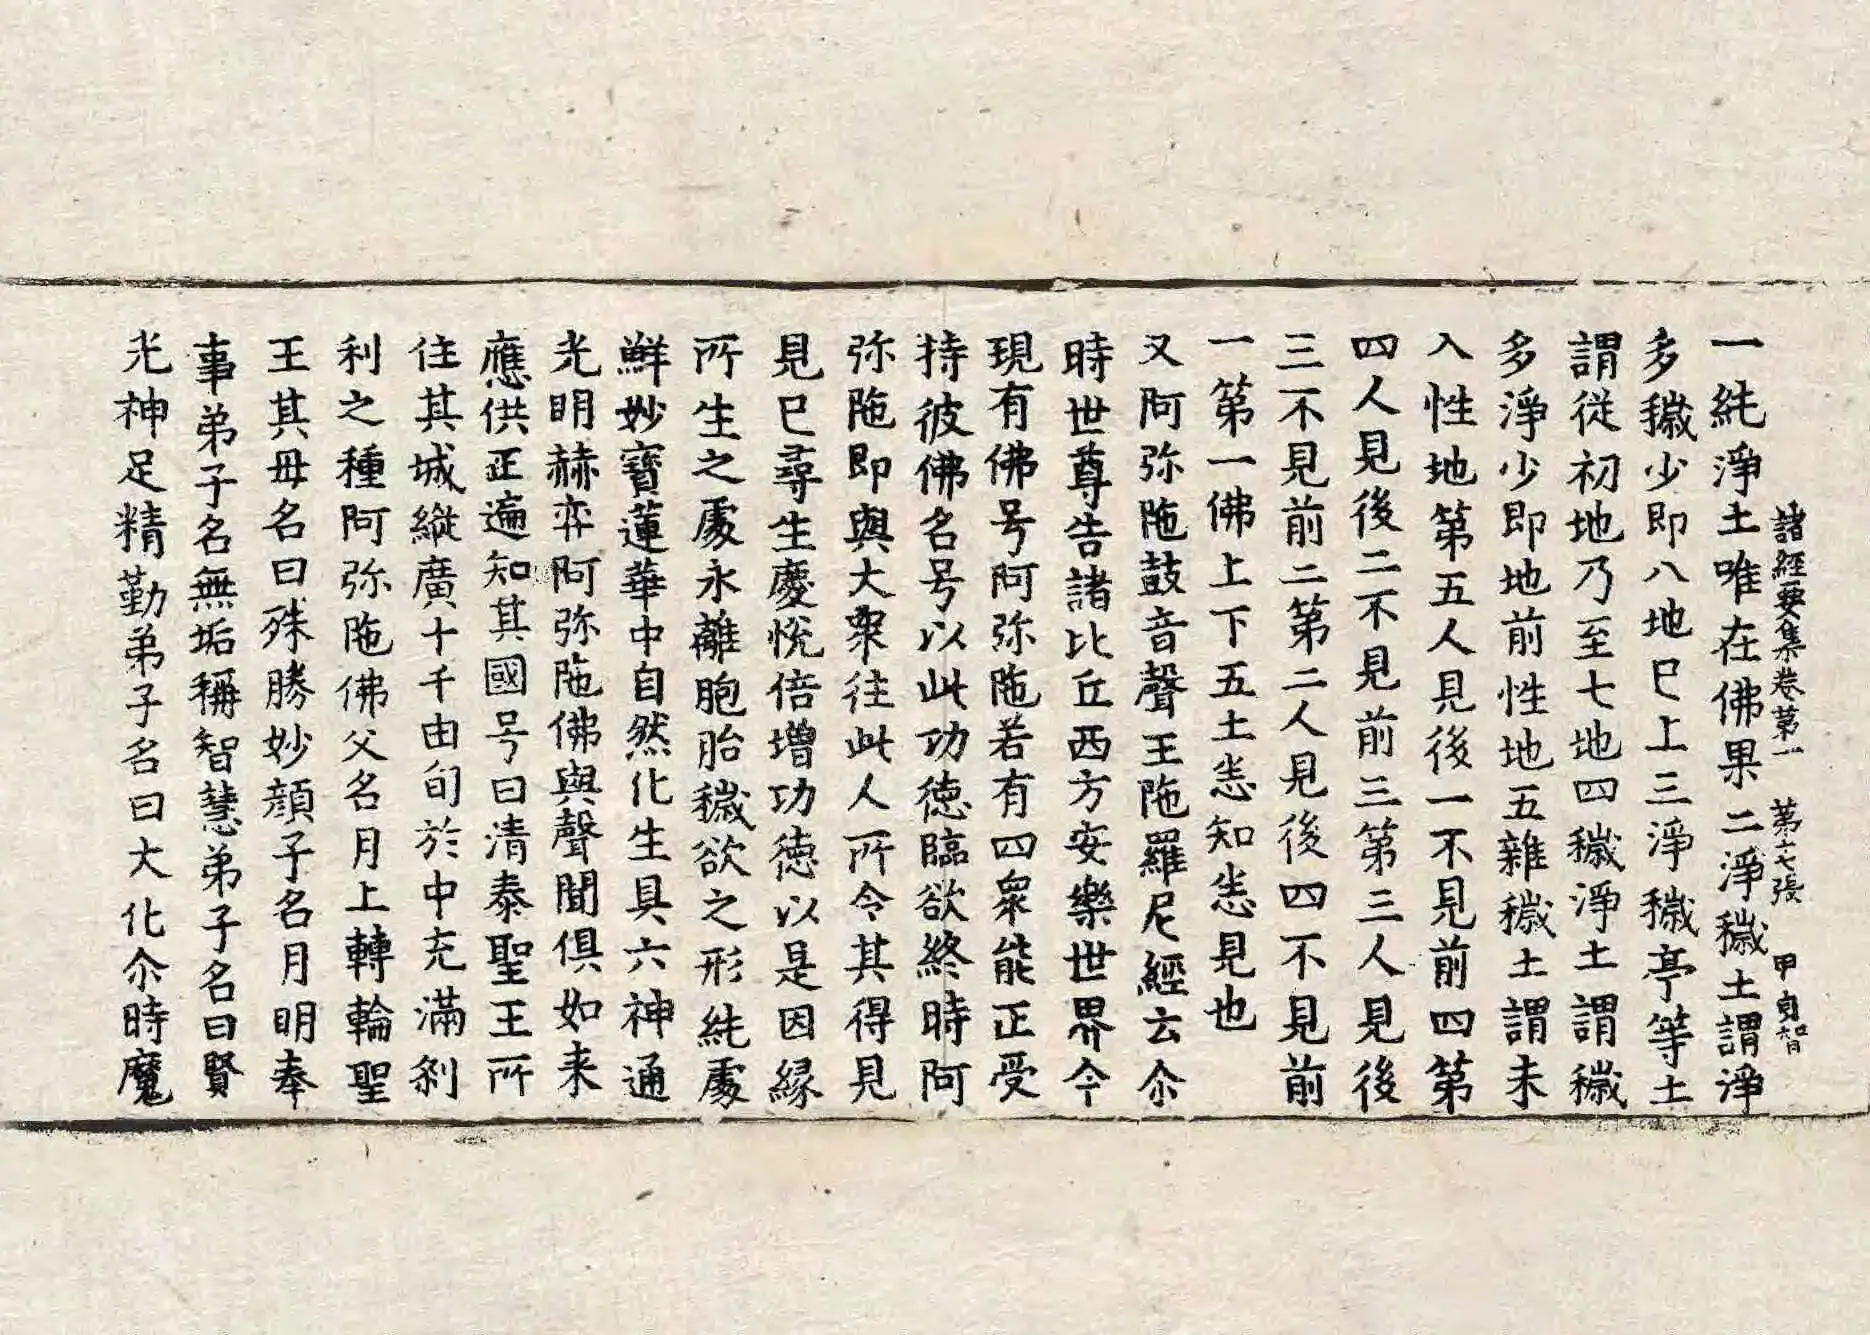 諸經要集卷第一　第十七張　甲　貞智
一純淨土唯在佛果二淨穢土謂淨
多穢少即八地已上三淨穢亭等土
謂從初地乃至七地四穢淨土謂穢
多淨少即地前性地五雜穢土謂未
入性地第五人見後一不見前四第
四人見後二不見前三第三人見後
三不見前二第二人見後四不見前
一第一佛上下五土悉知悉見也
又阿弥陁鼓音聲王陁羅尼經云尒
時世尊告諸比丘西方安樂世界今
現有佛号阿弥陁若有四衆能正受
持彼佛名号以此功德臨欲終時阿
弥陁即與大衆往此人所令其得見
見已尋生慶悅倍增功德以是因緣
所生之處永離胞胎穢欲之形純處
鮮妙寶蓮華中自然化生具六神通
光明赫弈阿弥陁佛與聲聞俱如来
應供正遍知其國号曰清泰聖王所
住其城縱廣十千由旬於中充滿刹
利之種阿弥陁佛父名月上轉輪聖
王其母名曰殊勝妙顔子名月明奉
事弟子名無垢稱智慧弟子名曰賢
光神足精勤弟子名曰大化尒時魔